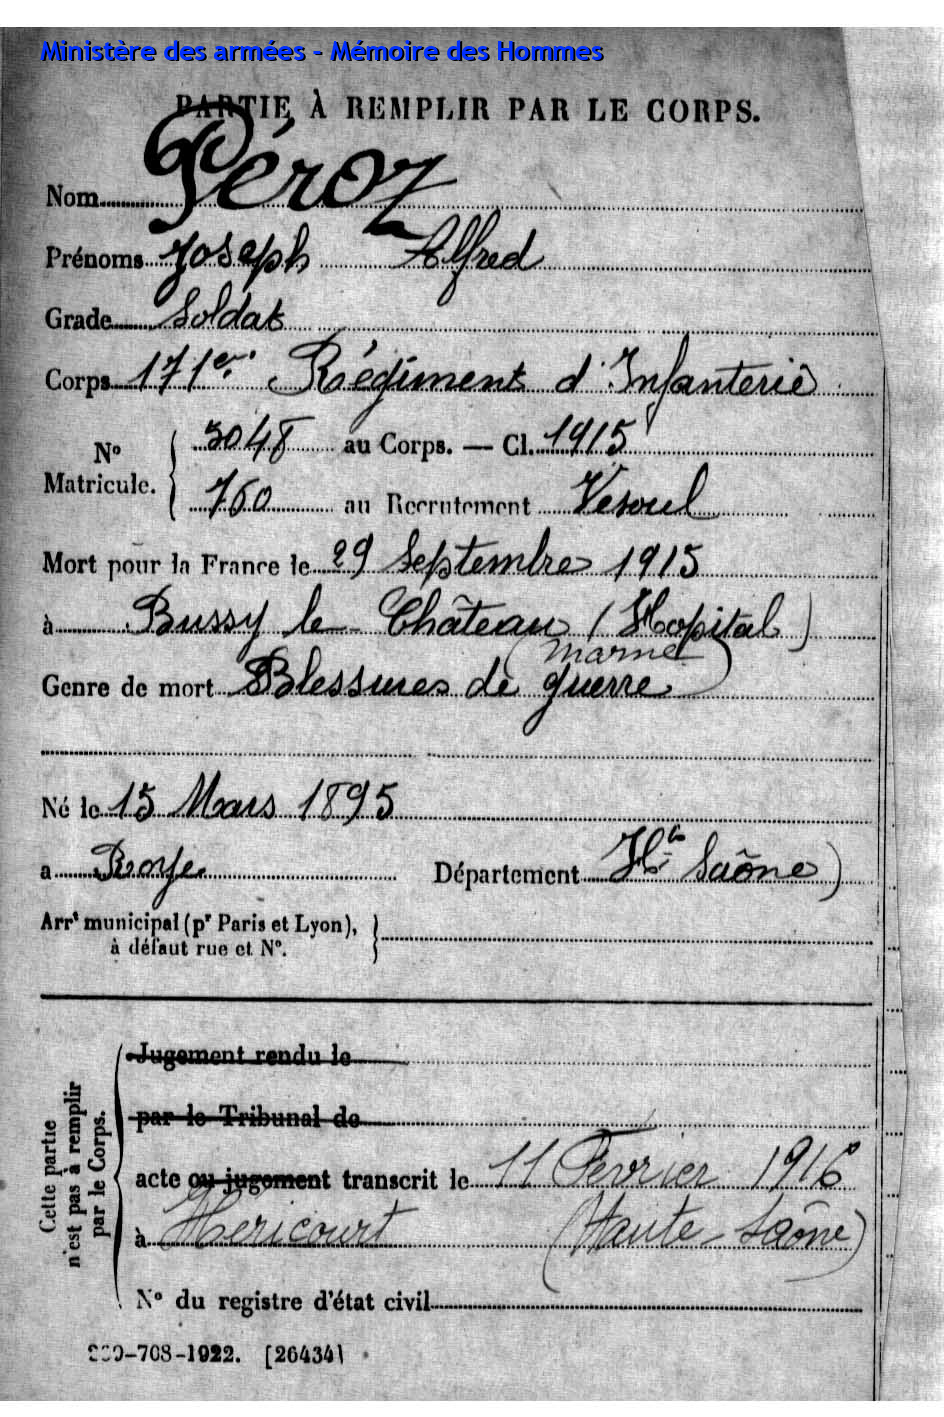 Ministère des armées - Mémoire des Hommes
PARTIE À REMPLIR PAR LE CORPS.
Nom Péroz
Prénoms Joseph Alfred
Grade Soldat
Corps 171er. Régiment d'Infanterie
N° Matricule. { 3048 au Corps. — Cl. 1915
760 au Recrutement Vesoul
Mort pour la France le 29 Septembre 1915
à Bussy le Château (Hopital)
(Marne)
Genre de mort Blessures de guerre
Né le 15 Mars 1895
a Roye Département Hte Saône)
Arrt municipal (pr Paris et Lyon), }
à défaut rue et N°.
Cette partie n'est pas à remplir par le Corps.
Jugement rendu le
par le Tribunal de
acte ou jugement transcrit le 11 Fevrier 1916
à Hericourt (Haute-Saône)
N° du registre d'état civil
708-1922. [26434]